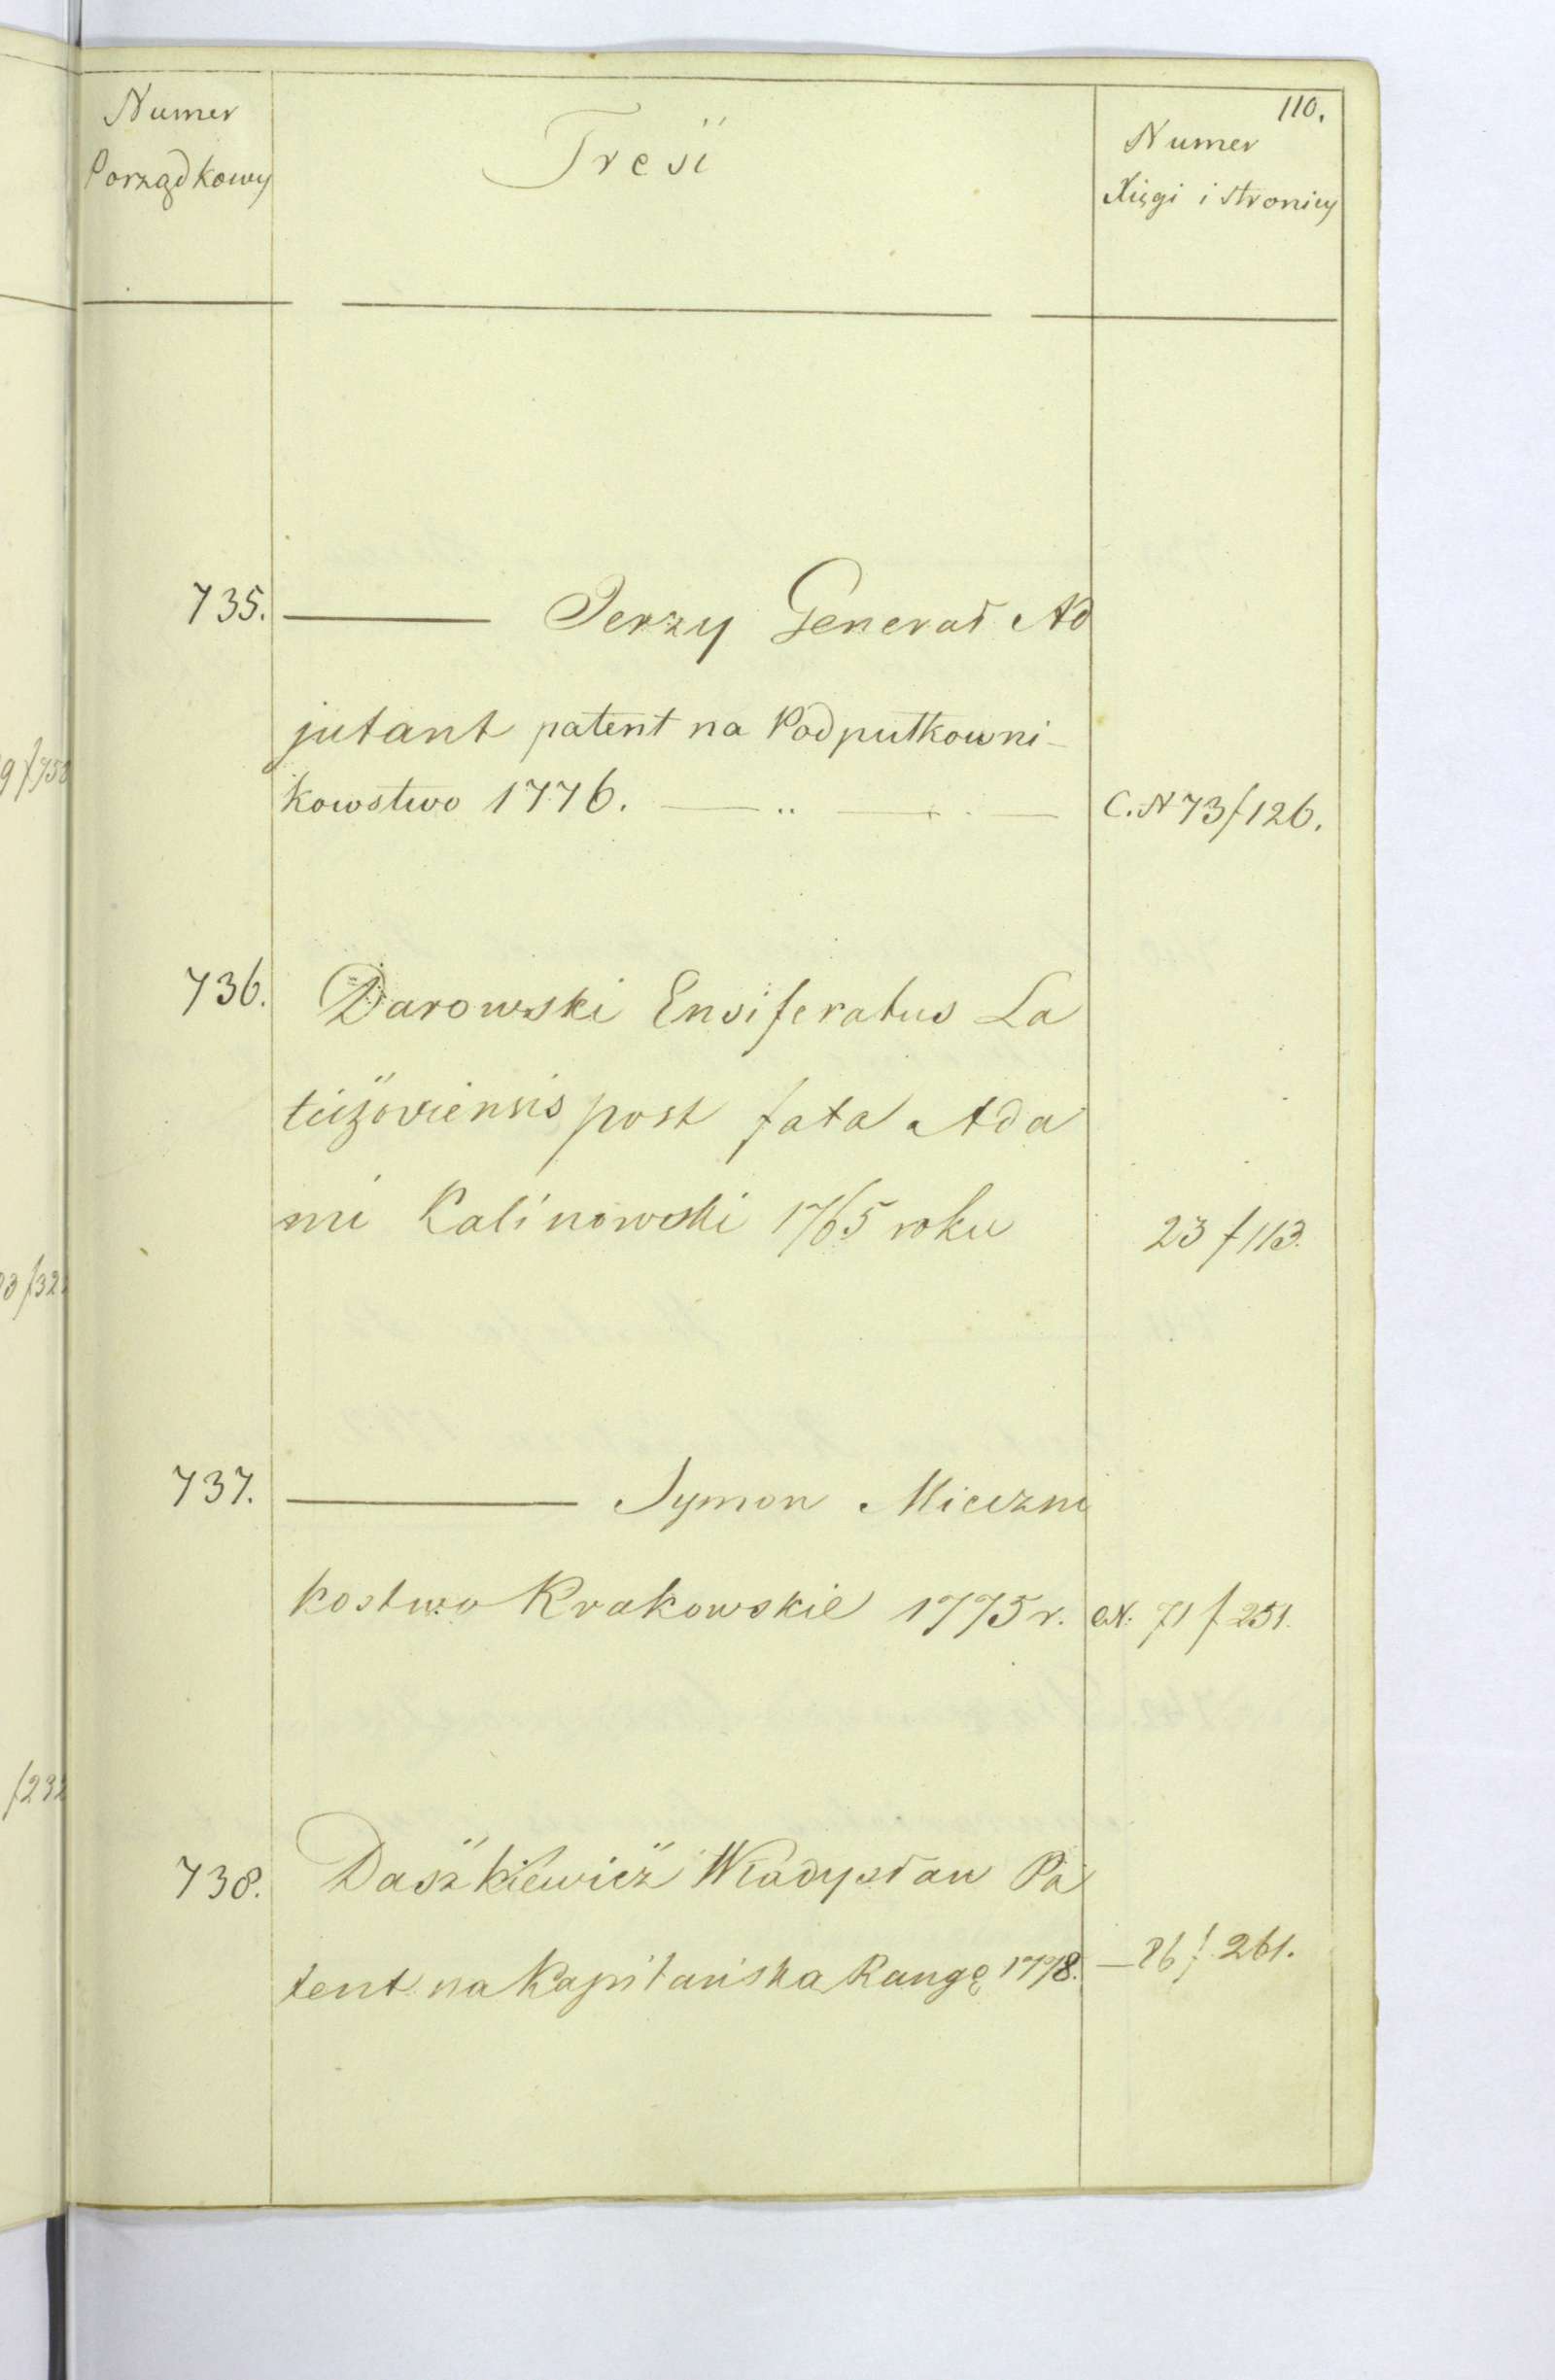 110.
Numer
Porządkowy
Treść
Numer
Xięgi i stronicy
735. ——— Jerzy Generał Ad
jutant patent na Podpułkowni-
kowstwo 1776. C.N 73 f 126.
736. Darowski Ensiferatus La
ticzoviensis post fata Ada
mi Kalinowski 1765 roku 23 f 113.
737. ——— Symon Mieczni
kostwo Krakowskie 1775 r. C.N. 71 f 251.
738. Daszkiewicz Władysław Pa
tent na Kapitańska Rangę 1778. — 86 f 261.